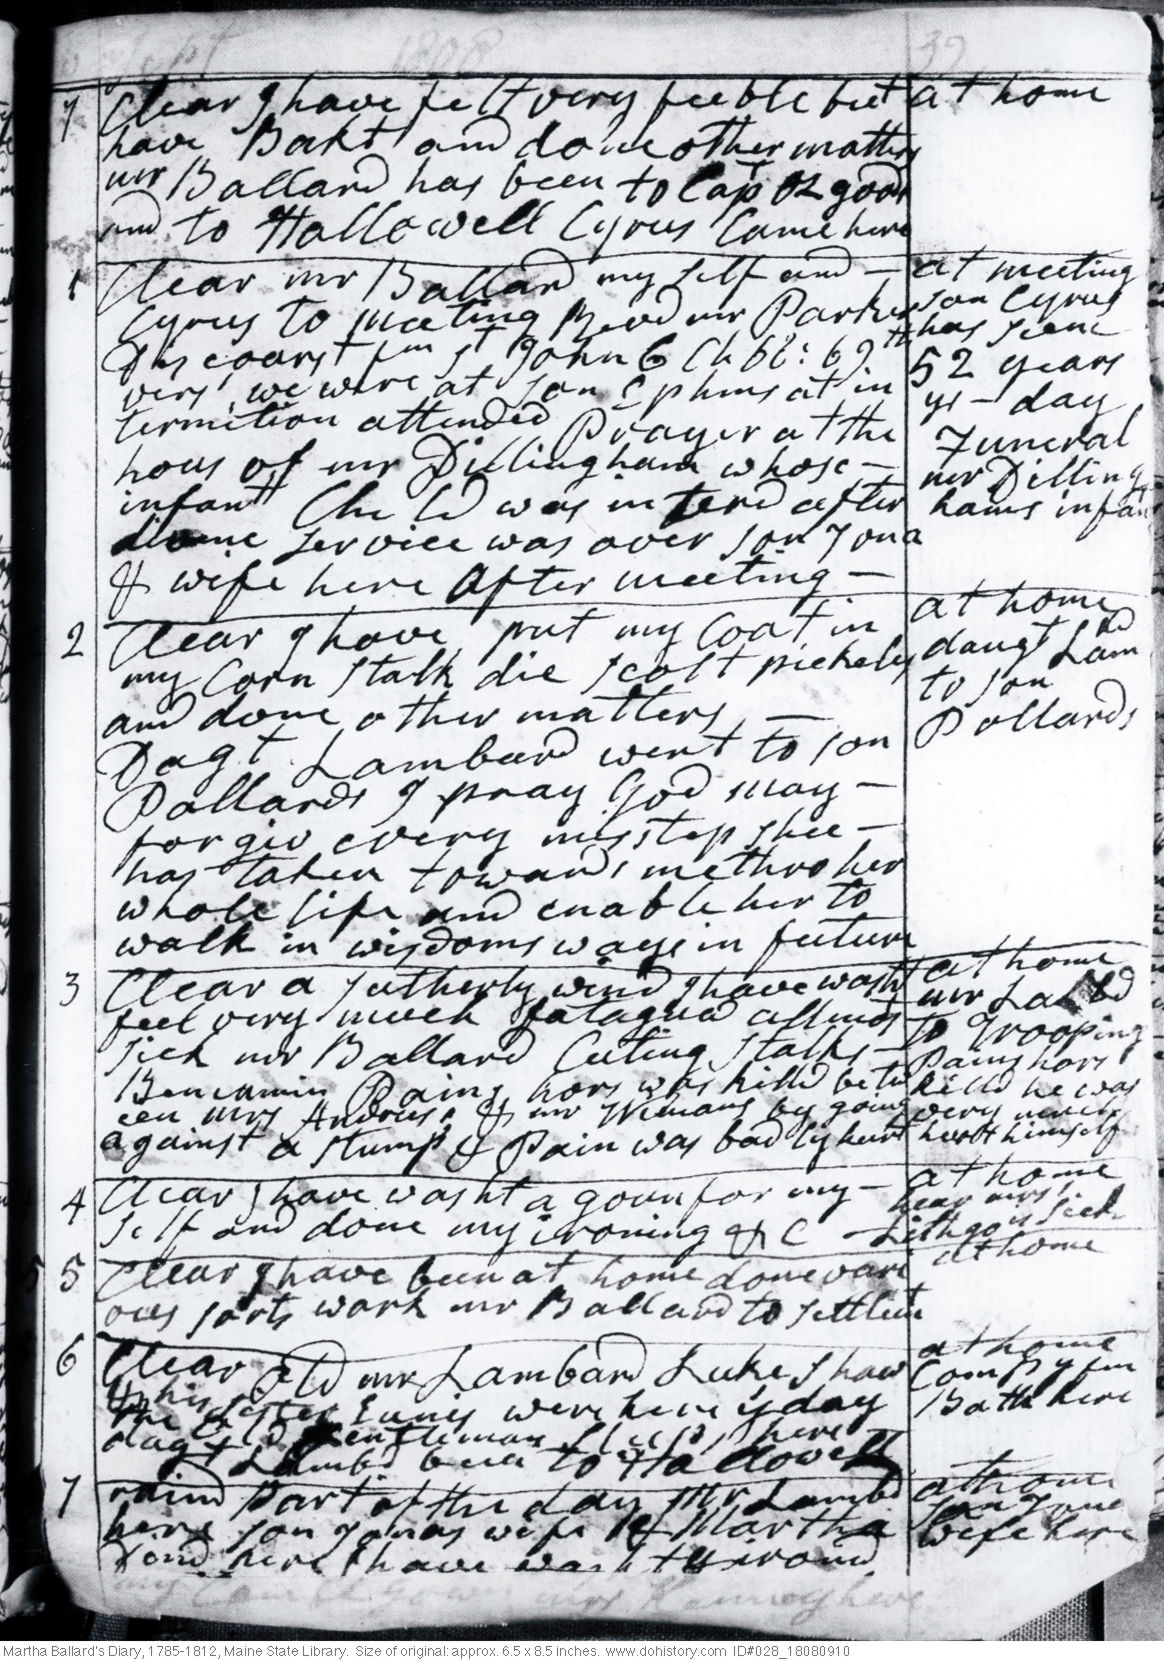 Sept 1808 39
7 Clear I have felt very feeble but at home
have Bakt and done other matters
mr Ballard has been to Cap Oz good
and to Hallowell Cyrus Came here
1 Clear mr Ballard my self and – at meeting
Cyrus to meeting Revd mr Parker son Cyrus
Discourst fm St John 6 Ch 68: 69th has seene
vers, we were at son Ephms at in 52 years
termition attended Prayer at the ys-day
hous of mr Dillingham whose – Funeral
infant Child was intered after mr Dilling
divine service was over son Jona hams infant
& wife here After meeting –
2 Clear I have put my Coat in at home
my Corn stalk die scolt pickels daugt Lambd
and done other matters – to son
Dagt Lambard went to son Pollards
Pollards I pray God may –
forgiv every misstep shee –
has taken towards me thro her
whole life and enable her to
walk in wisdoms ways in future
3 Clear a sutherly wind I have washt at home
feel very much fatagud allmost mr Lambd
sick mr Ballard Cuting stalks – to Trooping
Benjamin Pains hors was killd betw Pains hors
een mrs Andrus & mr by going killd he was
against a stump & Pain was badly hurt very much
hurt himself
4 Clear I have washt a goun for my – at home
self and done my ironing & C – hear mrs
Lithgo is sick
5 5 Clear I have been at home done vari at home
ous sorts work mr Ballard to settlmt
6 Clear Old mr Lambard Luke Shaw at home
& his sister Eunis were here ys day Compy fm
the Old Gentleman sleeps here Bath here
dagt Lambd been to Hallowell
7 raind Part of the day mr Lambd at home
here son Jonas wife & Martha son Jona
Pond here I have washt & ironed wife here
my here